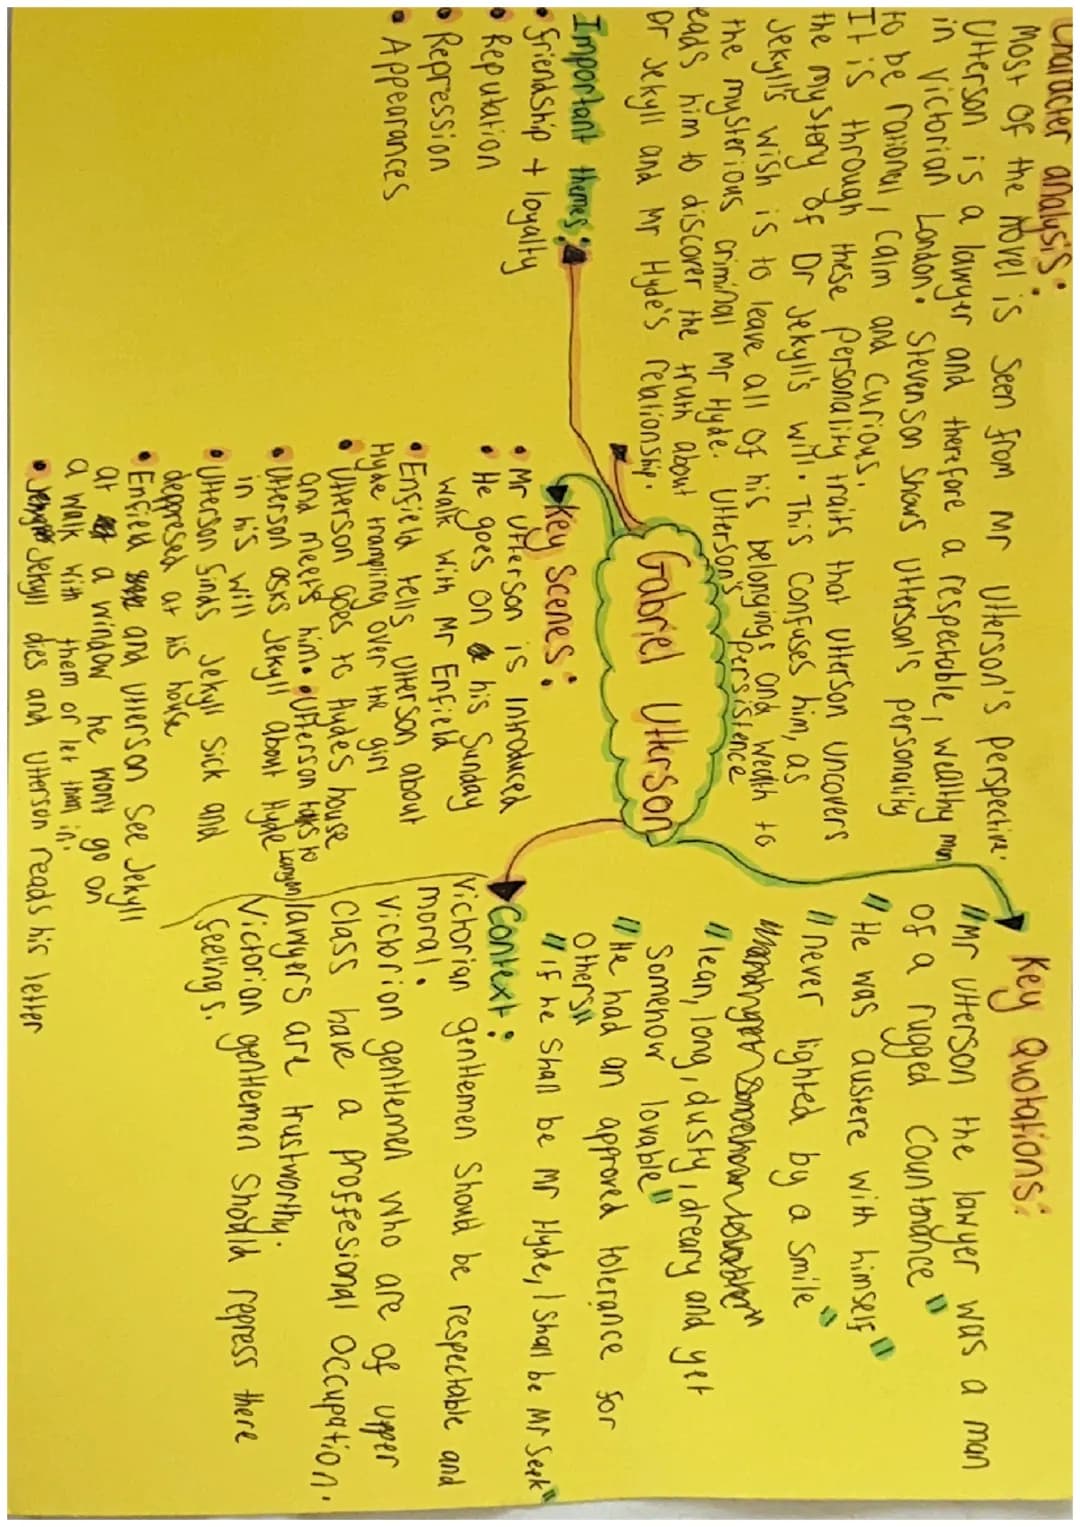 Character analysis:
Most of the novel is seen from Mr Utterson's perspective.
Utterson is a lawyer and therefore a respectable, wealthy man
in Victorian London. Stevenson shows Utterson's personality
to be rational, calm and curious.
It is through these personality traits that Utterson uncovers
the mystery of Dr Jekyll's will. This confuses him, as
Jekyll's wish is to leave all of his belongings and wealth to
the mysterious criminal Mr Hyde. Utterson's persistence
leads him to discover the truth about
Dr Jekyll and Mr Hyde's relationship.
Important themes:
• friendship + loyalty
• Reputation
• Repression
• Appearances
Gabriel Utterson
Key Quotations:
"Mr Utterson the lawyer was a man
of a rugged countenance"
"He was austere with himself"
"never lighted by a smile"
"lean, long, dusty, dreary and yet
somehow lovable"
"He had an approved tolerance for
others"
"if he shall be Mr Hyde, I shall be Mr Seek"
Key Scenes:
• Mr Utterson is Introduced
• He goes on his Sunday
walk with Mr Enfield
• Enfield tells Utterson about
Hyde trampling over the girl
• Utterson goes to Hydes house
and meets him. • Utterson talks to Lanyon
• Utterson asks Jekyll about Hyde
in his will
• Utterson finds Jekyll sick and
depresed at his house
• Enfield and Utterson see Jekyll
at a window he wont go on
a walk with them or let them in.
• Jekyll dies and Utterson reads his letter
Context:
Victorian gentlemen should be respectable and
moral.
Victorion gentlemen who are of upper
class have a proffesional occupation.
lawyers are trustworthy.
Victorian gentlemen should repress there
feelings.